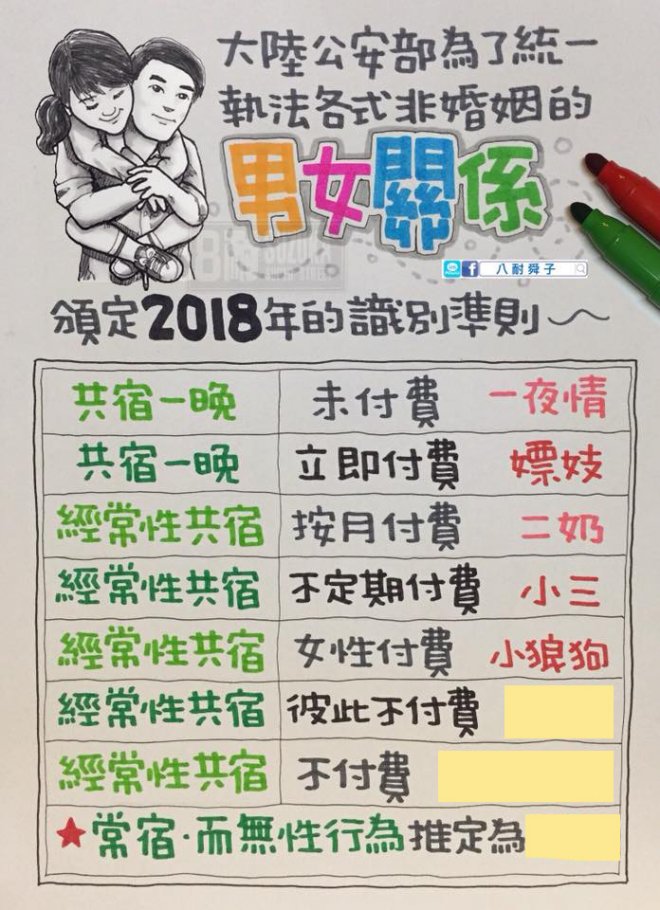 大陸公安部為了統一
執法各式非婚姻的
男女關係
八耐舜子
頒定2018年的識別準則
共宿一晚 未付費 一夜情
共宿一晚 立即付費 嫖妓
經常性共宿 按月付費 二奶
經常性共宿 不定期付費 小三
經常性共宿 女性付費 小狼狗
經常性共宿 彼此不付費
經常性共宿 不付費
★常宿·而無性行為推定為